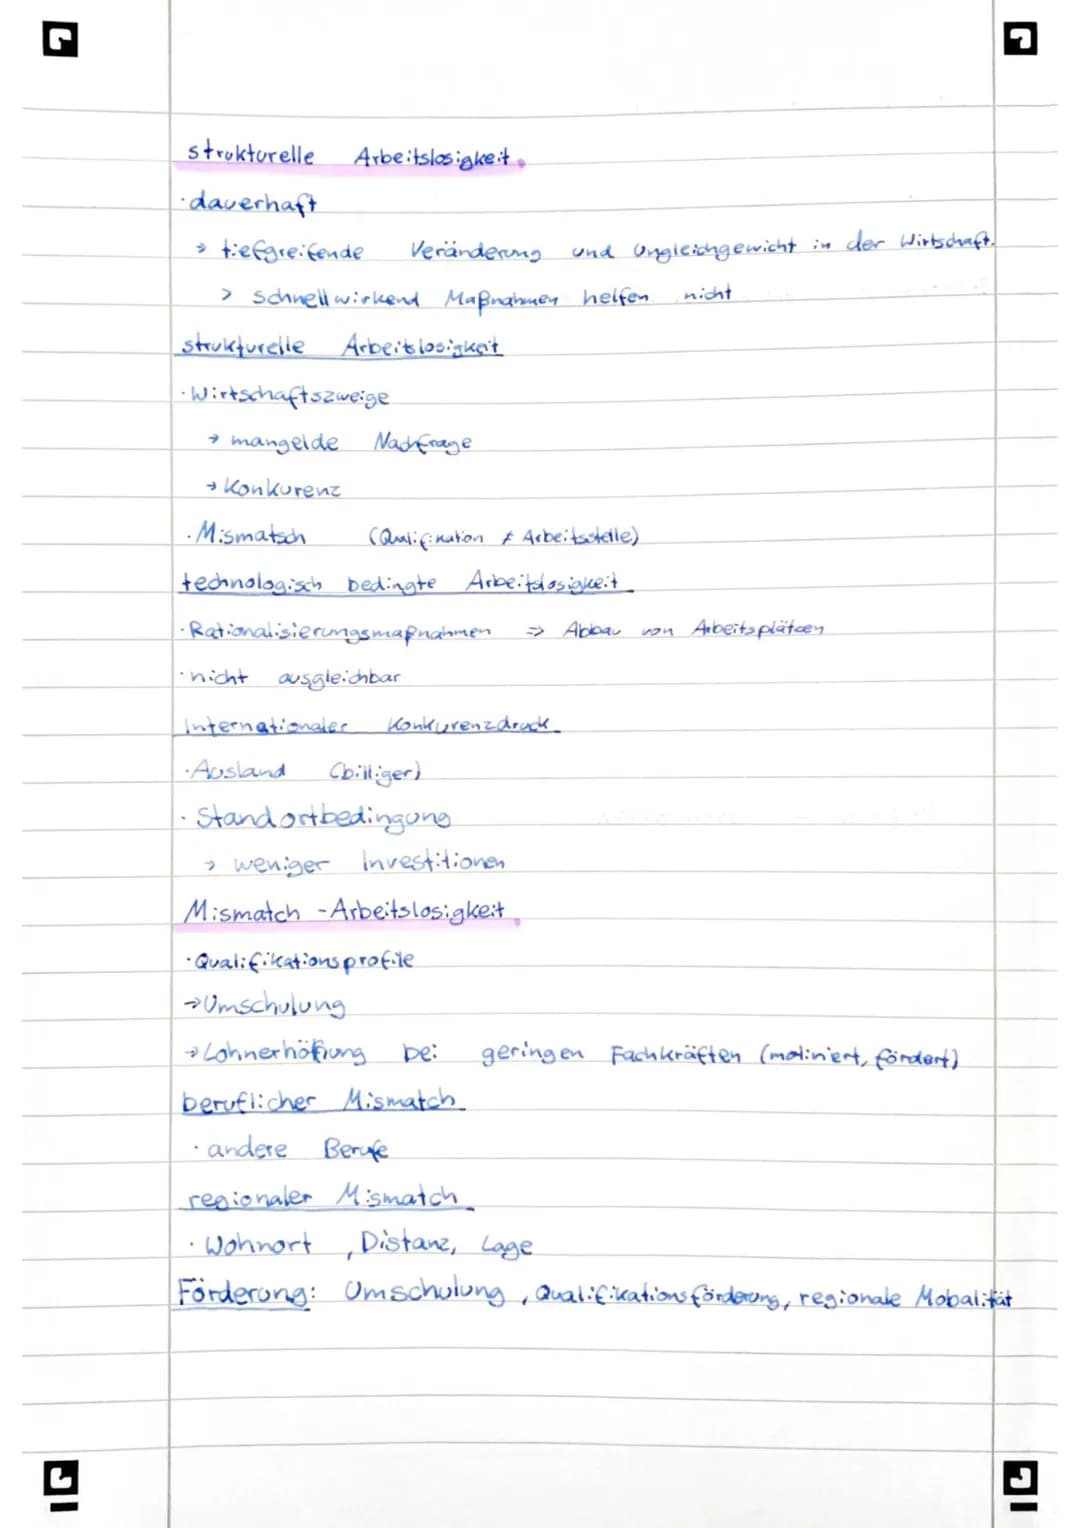 strukturelle Arbeitslosigkeit
· dauerhaft
→ tiefgreifende Veränderung und Ungleichgewicht in der Wirtschaft.
> schnellwirkend Maßnahmen helfen nicht
strukturelle Arbeitslosigkeit
· Wirtschaftszweige
→ mangelde Nachfrage
→ Konkurenz
· Mismatsch (Qualifikation ≠ Arbeitsstelle)
technologisch bedingte Arbeitslosigkeit
· Rationalisierungsmaßnahmen => Abbau von Arbeitsplätzen
· nicht ausgleichbar
Internationaler Konkurenzdruck
· Ausland (billiger)
· Standortbedingung
→ weniger Investitionen
Mismatch - Arbeitslosigkeit
· Qualifikationsprofile
→ Umschulung
→ Lohnerhöhung bei geringen Fachkräften (motiviert, fördert)
beruflicher Mismatch
· andere Berufe
regionaler Mismatch
· Wohnort, Distanz, Lage
Förderung: Umschulung, Qualifikationsförderung, regionale Mobalität